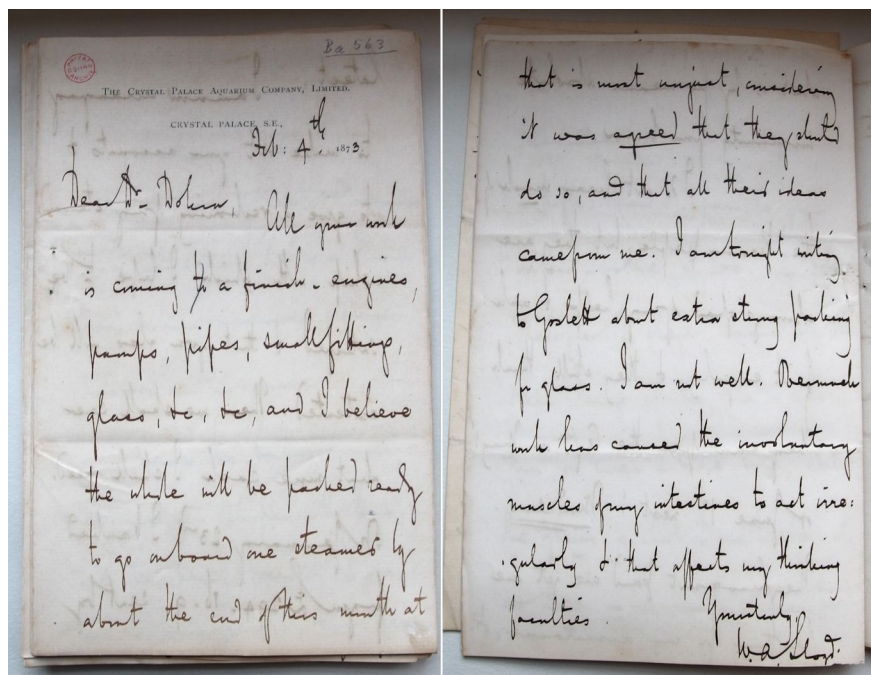 Ba 563
THE CRYSTAL PALACE AQUARIUM COMPANY, LIMITED.
CRYSTAL PALACE, S.E.,
Feb: 4th. 1873
Dear Dr. Dohrn,
All your work
is coming to a finish - engines,
pumps, pipes, small fittings,
glass, &c, &c, and I believe
the whole will be packed ready
to go on board one steamer by
about the end of this month at
that is most unjust, considering
it was agreed that they should
do so, and that all their ideas
came from me. I am tonight writing
to Goslett about extra strong packing
for glass. I am not well. Overmuch
work has caused the involuntary
muscles of my intestines to act irre:
:gularly & that affects my thinking
faculties. Yours truly
W. A. Lloyd.